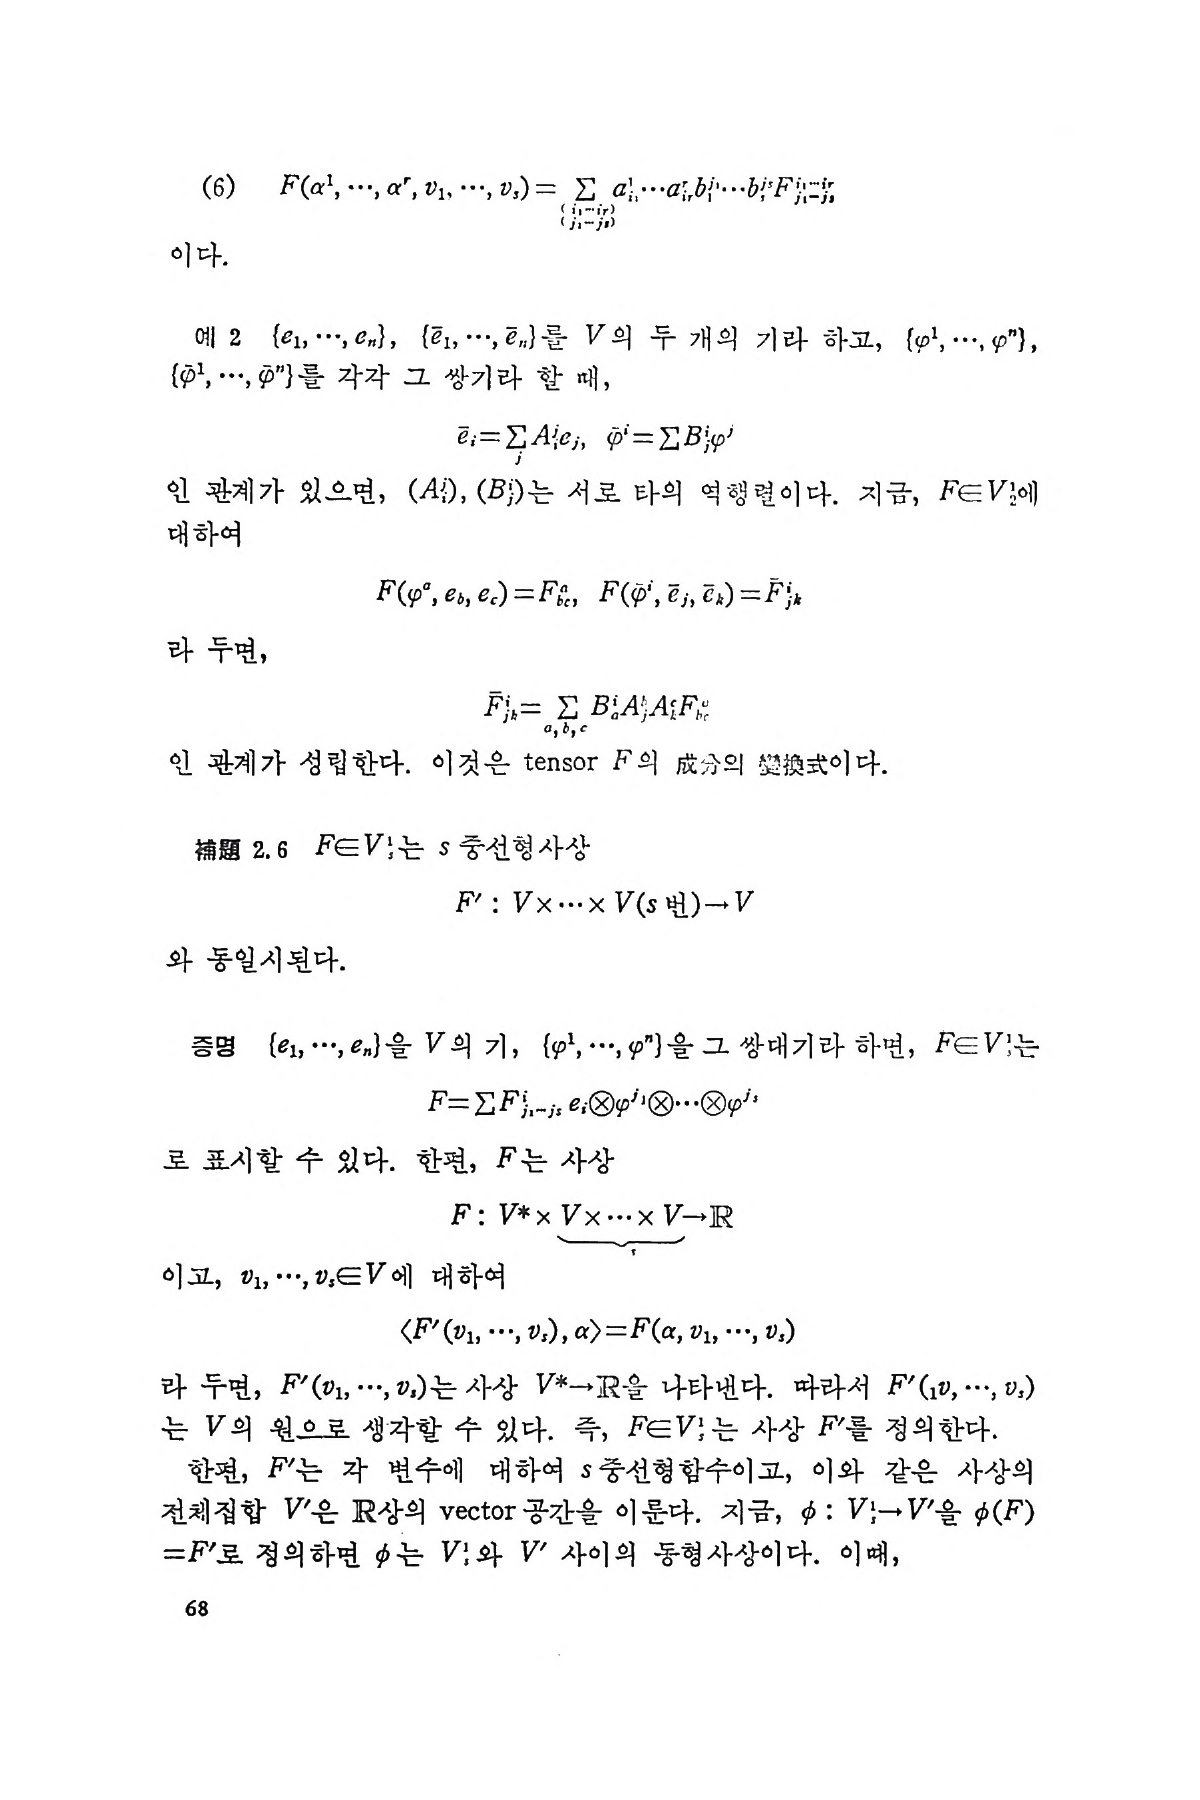 (6) F(α¹, ⋯, αʳ, v₁, ⋯, vₛ) = ∑_{(i₁⋯iᵣ)(j₁⋯jₛ)} a^1_{i₁}⋯a^r_{iᵣ}b^{j₁}_1⋯b^{jₛ}_s F^{i₁⋯iᵣ}_{j₁⋯jₛ}
이다.
예 2 {e₁, ⋯, eₙ}, {ē₁, ⋯, ēₙ}를 V의 두 개의 기라 하고, {φ¹, ⋯, φⁿ},
{φ̄¹, ⋯, φ̄ⁿ}를 각각 그 쌍기라 할 때,
ē_i=∑_j A^j_i e_j, φ̄^i=∑B^i_j φ^j
인 관계가 있으면, (A^j_i), (B^i_j)는 서로 타의 역행렬이다. 지금, F∈V^1_2에
대하여
F(φ^a, e_b, e_c)=F^a_{bc}, F(φ̄^i, ē_j, ē_k)=F̄^i_{jk}
라 두면,
F̄^i_{jk}= ∑_{a,b,c} B^i_a A^b_j A^c_k F^a_{bc}
인 관계가 성립한다. 이것은 tensor F의 成分의 變換式이다.
補題 2.6 F∈V^1_s는 s중선형사상
F′ : V×⋯×V(s번)→V
와 동일시된다.
증명 {e₁, ⋯, eₙ}을 V의 기, {φ¹, ⋯, φⁿ}을 그 쌍대기라 하면, F∈V^1_s는
F=∑F^i_{j₁⋯jₛ} e_i⊗φ^{j₁}⊗⋯⊗φ^{jₛ}
로 표시할 수 있다. 한편, F는 사상
F : V*×V×⋯×V→ℝ
s
이고, v₁, ⋯, vₛ∈V에 대하여
⟨F′(v₁, ⋯, vₛ), α⟩=F(α, v₁, ⋯, vₛ)
라 두면, F′(v₁, ⋯, vₛ)는 사상 V*→ℝ을 나타낸다. 따라서 F′(₁v, ⋯, vₛ)
는 V의 원으로 생각할 수 있다. 즉, F∈V^1_s는 사상 F′를 정의한다.
한편, F′는 각 변수에 대하여 s중선형함수이고, 이와 같은 사상의
전체집합 V′은 ℝ상의 vector공간을 이룬다. 지금, ϕ : V^1_s→V′을 ϕ(F)
=F′로 정의하면 ϕ는 V^1_s와 V′ 사이의 동형사상이다. 이때,
68